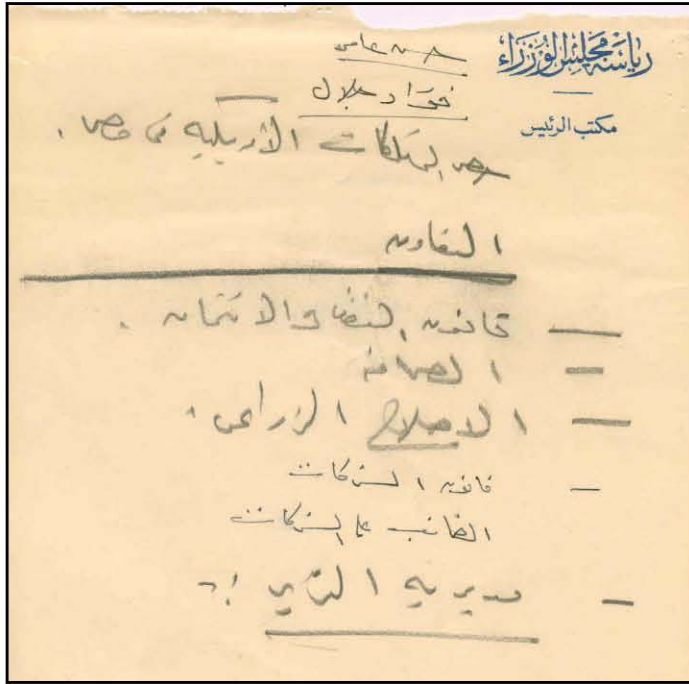 رياسة مجلس الوزراء
مكتب الرئيس
فؤاد جلال
الممتلكات الأمريكية فى مصر .
التعاون
— قانون النقد والائتمان .
— الصحافة
— الاصلاح الزراعى .
- قانون الشركات
الضرائب على الشركات
- مديرية التحرير :-